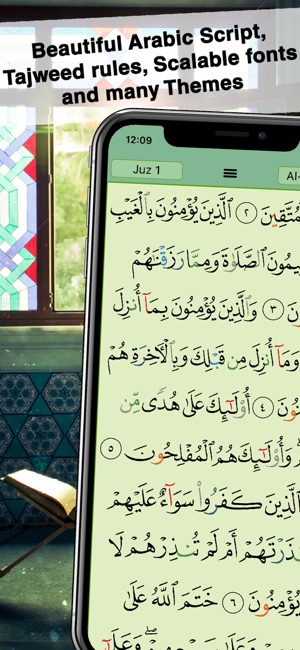 Beautiful Arabic Script,
Tajweed rules, Scalable fonts
and many Themes
12:09
Juz 1
Al-
مُتَّقِينَ ٢ ٱلَّذِينَ يُؤۡمِنُونَ بِٱلۡغَيۡبِ
يمُونَ ٱلصَّلَوٰةَ وَمِمَّا رَزَقۡنَٰهُمۡ
نَ ٣ وَٱلَّذِينَ يُؤۡمِنُونَ بِمَآ أُنزِلَ
وَمَآ أُنزِلَ مِن قَبۡلِكَ وَبِٱلۡأٓخِرَةِ هُمۡ
نُونَ ٤ أُوْلَٰٓئِكَ عَلَىٰ هُدٗى مِّن
وَأُوْلَٰٓئِكَ هُمُ ٱلۡمُفۡلِحُونَ ٥
ٱلَّذِينَ كَفَرُواْ سَوَآءٌ عَلَيۡهِمۡ
نذَرۡتَهُمۡ أَمۡ لَمۡ تُنذِرۡهُمۡ لَا
يُؤۡمِنُونَ ٦ خَتَمَ ٱللَّهُ عَلَىٰ